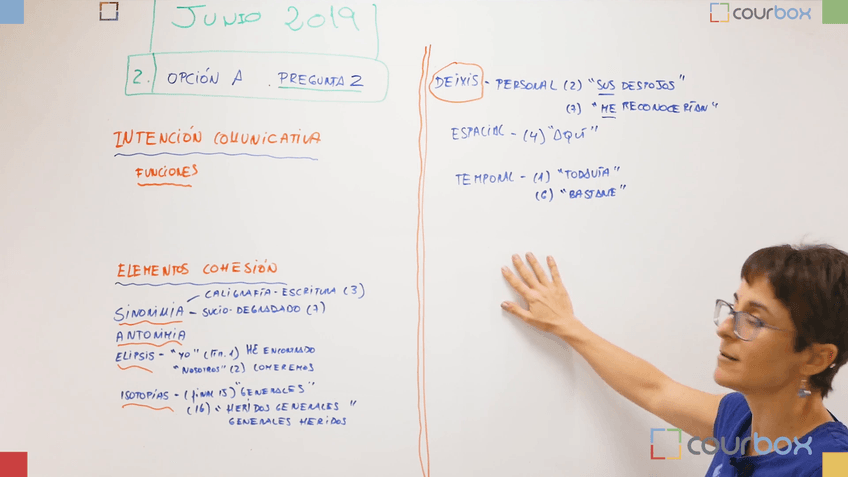 courbox
JUNIO 2019
2. OPCIÓN A . PREGUNTA 2
INTENCIÓN COMUNICATIVA
FUNCIONES
ELEMENTOS COHESIÓN
SINONIMIA - CALIGRAFÍA - ESCRITURA (3)
- SUCIO - DEGRADADO (7)
ANTONIMIA
ELIPSIS - "YO" (lín. 1) HE ENCONTRADO
"NOSOTROS" (2) COMEREMOS
ISOTOPIAS - (final 15) "GENERALES"
(16) "HERIDOS GENERALES"
GENERALES HERIDOS
DEIXIS - PERSONAL (2) "SUS DESPOJOS"
(7) "ME RECONOCERÍAN"
ESPACIAL - (4) "AQUÍ"
TEMPORAL - (1) "TODAVÍA"
(6) "BASTANE"
courbox